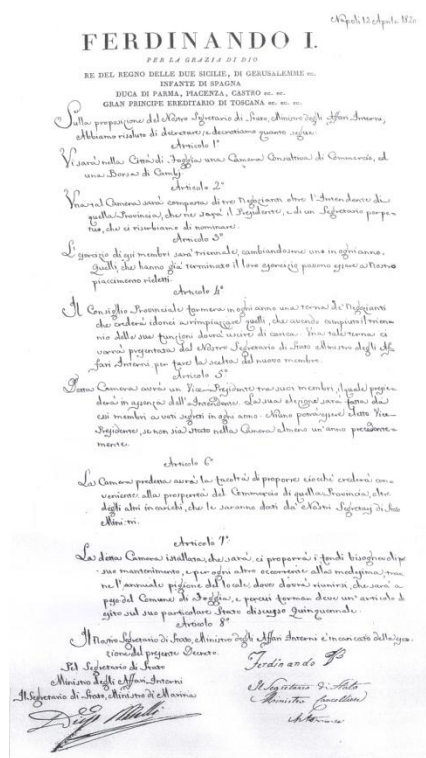 Napoli 12 Aprile 1820
FERDINANDO I.
PER LA GRAZIA DI DIO
RE DEL REGNO DELLE DUE SICILIE, DI GERUSALEMME ec.
INFANTE DI SPAGNA
DUCA DI PARMA, PIACENZA, CASTRO ec. ec.
GRAN PRINCIPE EREDITARIO DI TOSCANA ec. ec. ec.
Sulla proposizione del Nostro Segretario di Stato, Ministro degli Affari Interni,
Abbiamo risoluto di decretare, e decretiamo quanto segue
Articolo 1°
Vi sarà nella Città di Foggia una Camera Consultiva di Commercio, ed
una Borsa di Cambj
Articolo 2°
Una tal Camera sarà composta di tre Negozianti oltre l'Intendente di
quella Provincia, che ne sarà il Presidente, e di un Segretario perpe-
tuo, che ci riserbiamo di nominare.
Articolo 3°
L'esercizio di essi membri sarà triennale, cambiandosene uno in ogni anno.
Quelli, che hanno già terminato il loro esercizio possono essere a Nostro
piacimento rieletti.
Articolo 4°
Il Consiglio Provinciale formerà in ogni anno una terna de' Negozianti
che crederà idonei a rimpiazzare quelli, che avendo compiuto il trien-
nio delle sue funzioni dovrà uscire di carica. Una tale terna ci
verrà presentata dal Nostro Segretario di Stato Ministro degli Af-
fari Interni per fare la scelta del nuovo membro.
Articolo 5°
Detta Camera avrà un Vice-Presidente tra suoi membri, il quale presie-
derà in assenza dell'Intendente. La sua elezione sarà fatta da
essi membri a voti segreti in ogni anno. Niuno potrà essere eletto Vice-
Presidente, se non sia stato nella Camera almeno un'anno precedente-
mente.
Articolo 6°
La Camera predetta avrà la facoltà di proporre ciocchè crederà con-
veniente alla prosperità del Commercio di quella Provincia, oltre
degli altri incarichi, che le saranno dati da' Nostri Segretarj di Stato
Ministri.
Articolo 7°
La detta Camera istallata che sarà, ci proporrà i fondi bisognevoli pe'l
suo mantenimento, e per ogni altro occorrente alla medesima, tran-
ne l'annuale pigione del locale, dove dovrà riunirsi, che sarà a
peso del Comune di Foggia, e perciò formar deve un'articolo d'
esito sul suo particolare Stato discusso Quinquennale.
Articolo 8°
Il Nostro Segretario di Stato, Ministro degli Affari Interni è incaricato della esecu-
zione del presente Decreto.
Pel Segretario di Stato
Ministro degli Affari Interni
Il Segretario di Stato, Ministro di Marina
Ferdinando
Il Segretario di Stato
Ministro Cancelliere